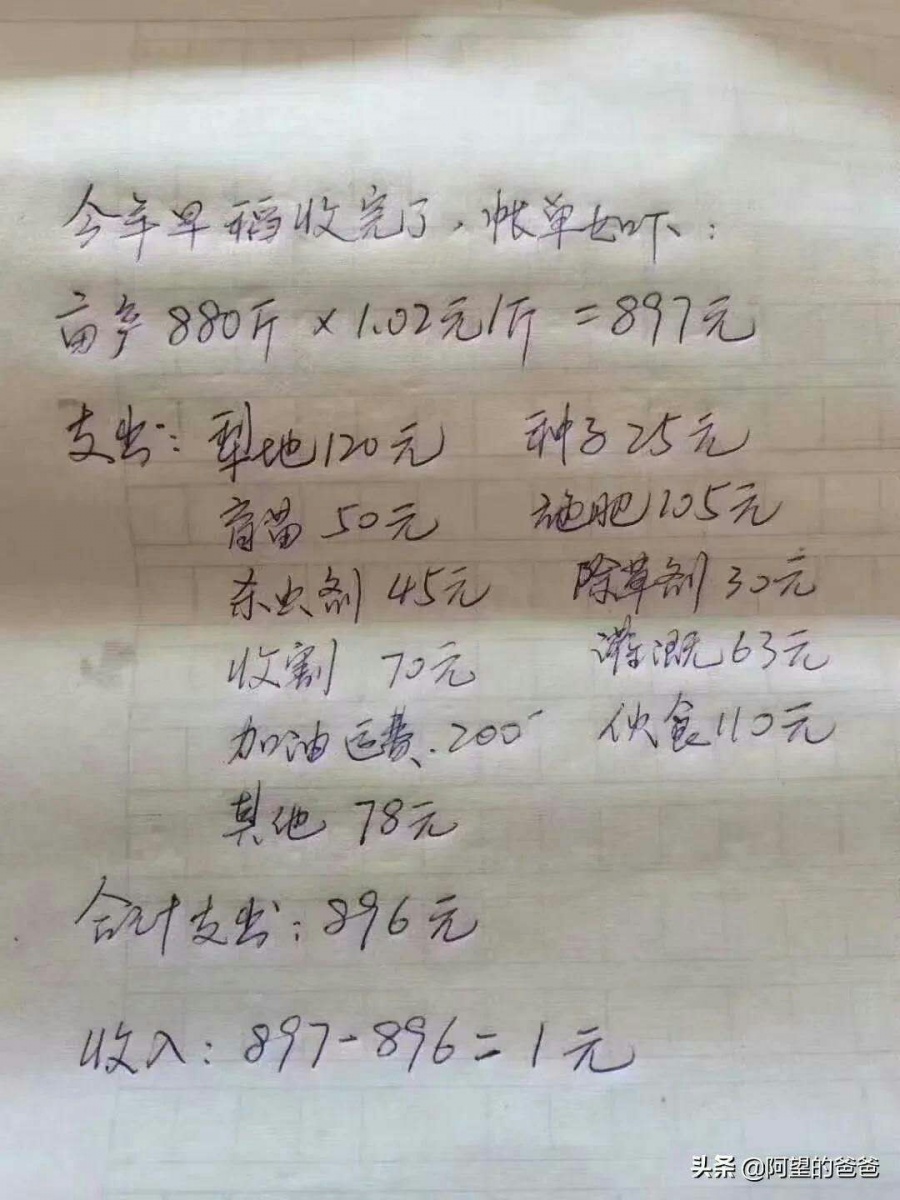 今年早稻收完了，帐单如下：
亩产 880斤 × 1.02元/斤 = 897元
支出：犁地120元 种子25元
育苗 50元 施肥105元
杀虫剂 45元 除草剂 30元
收割 70元 灌溉 63元
加油运费.200 伙食110元
其他 78元
合计支出：896元
收入：897-896=1元
头条 @阿望的爸爸